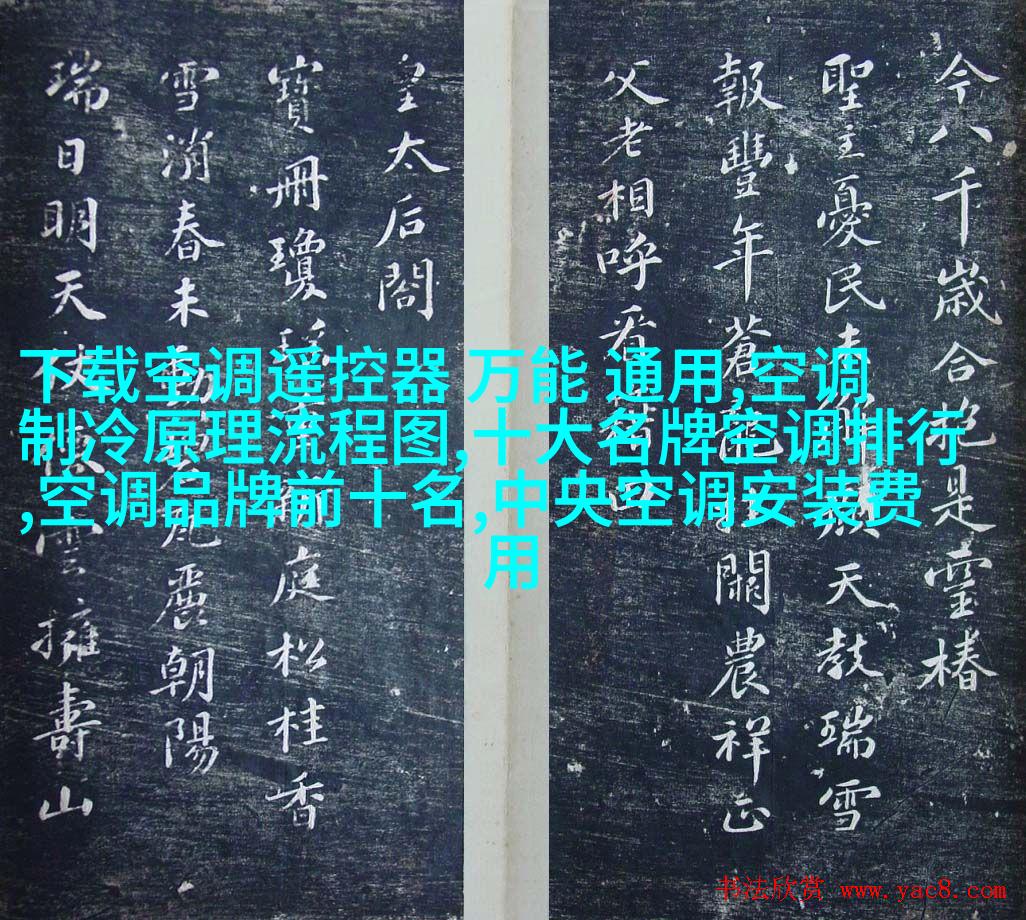 今八千歲合抱是靈椿
聖主憂民天教瑞雪
報豐年蒼龍闢農祥正
父老相呼看
皇太后閤
寶冊瓊庭松桂香
雪消春未動麗朝陽
瑞日明天雲擁壽山
下载空调遥控器 万能 通用,空调
制冷原理流程图,十大名牌空调排行
,空调品牌前十名,中央空调安装费
用
书法欣赏 www.yac8.com